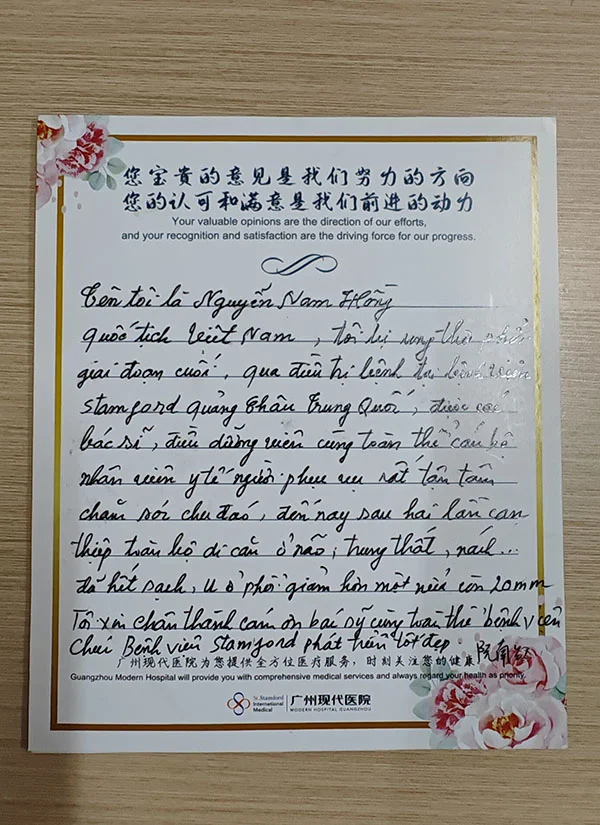 您宝贵的意见是我们努力的方向
您的认可和满意是我们前进的动力
Your valuable opinions are the direction of our efforts,
and your recognition and satisfaction are the driving force for our progress.
Tên tôi là Nguyễn Nam Hồng
Quốc tịch Việt Nam, tôi bị ung thư phổi
giai đoạn cuối, qua điều trị bệnh tại bệnh viện
Stamford quảng Châu Trung Quốc, được các
bác sĩ, điều dưỡng viên cùng toàn thể cán bộ
nhân viên y tế người phục vụ rất tận tâm
chăm sóc chu đáo, đến nay sau hai lần can
thiệp toàn bộ di căn ở não, trung thất, nách...
đã hết sạch, u ở phổi giảm hơn một nửa còn 20mm
Tôi xin chân thành cám ơn bác sỹ cùng toàn thể bệnh viện
Chúc Bệnh viện Stamford phát triển tốt đẹp.
阮南
广州现代医院为您提供全方位医疗服务，时刻关注您的健康
Guangzhou Modern Hospital will provide you with comprehensive medical services and always regard your health as priority.
St.Stamford
International
Medical
广州现代医院
MODERN HOSPITAL GUANGZHOU